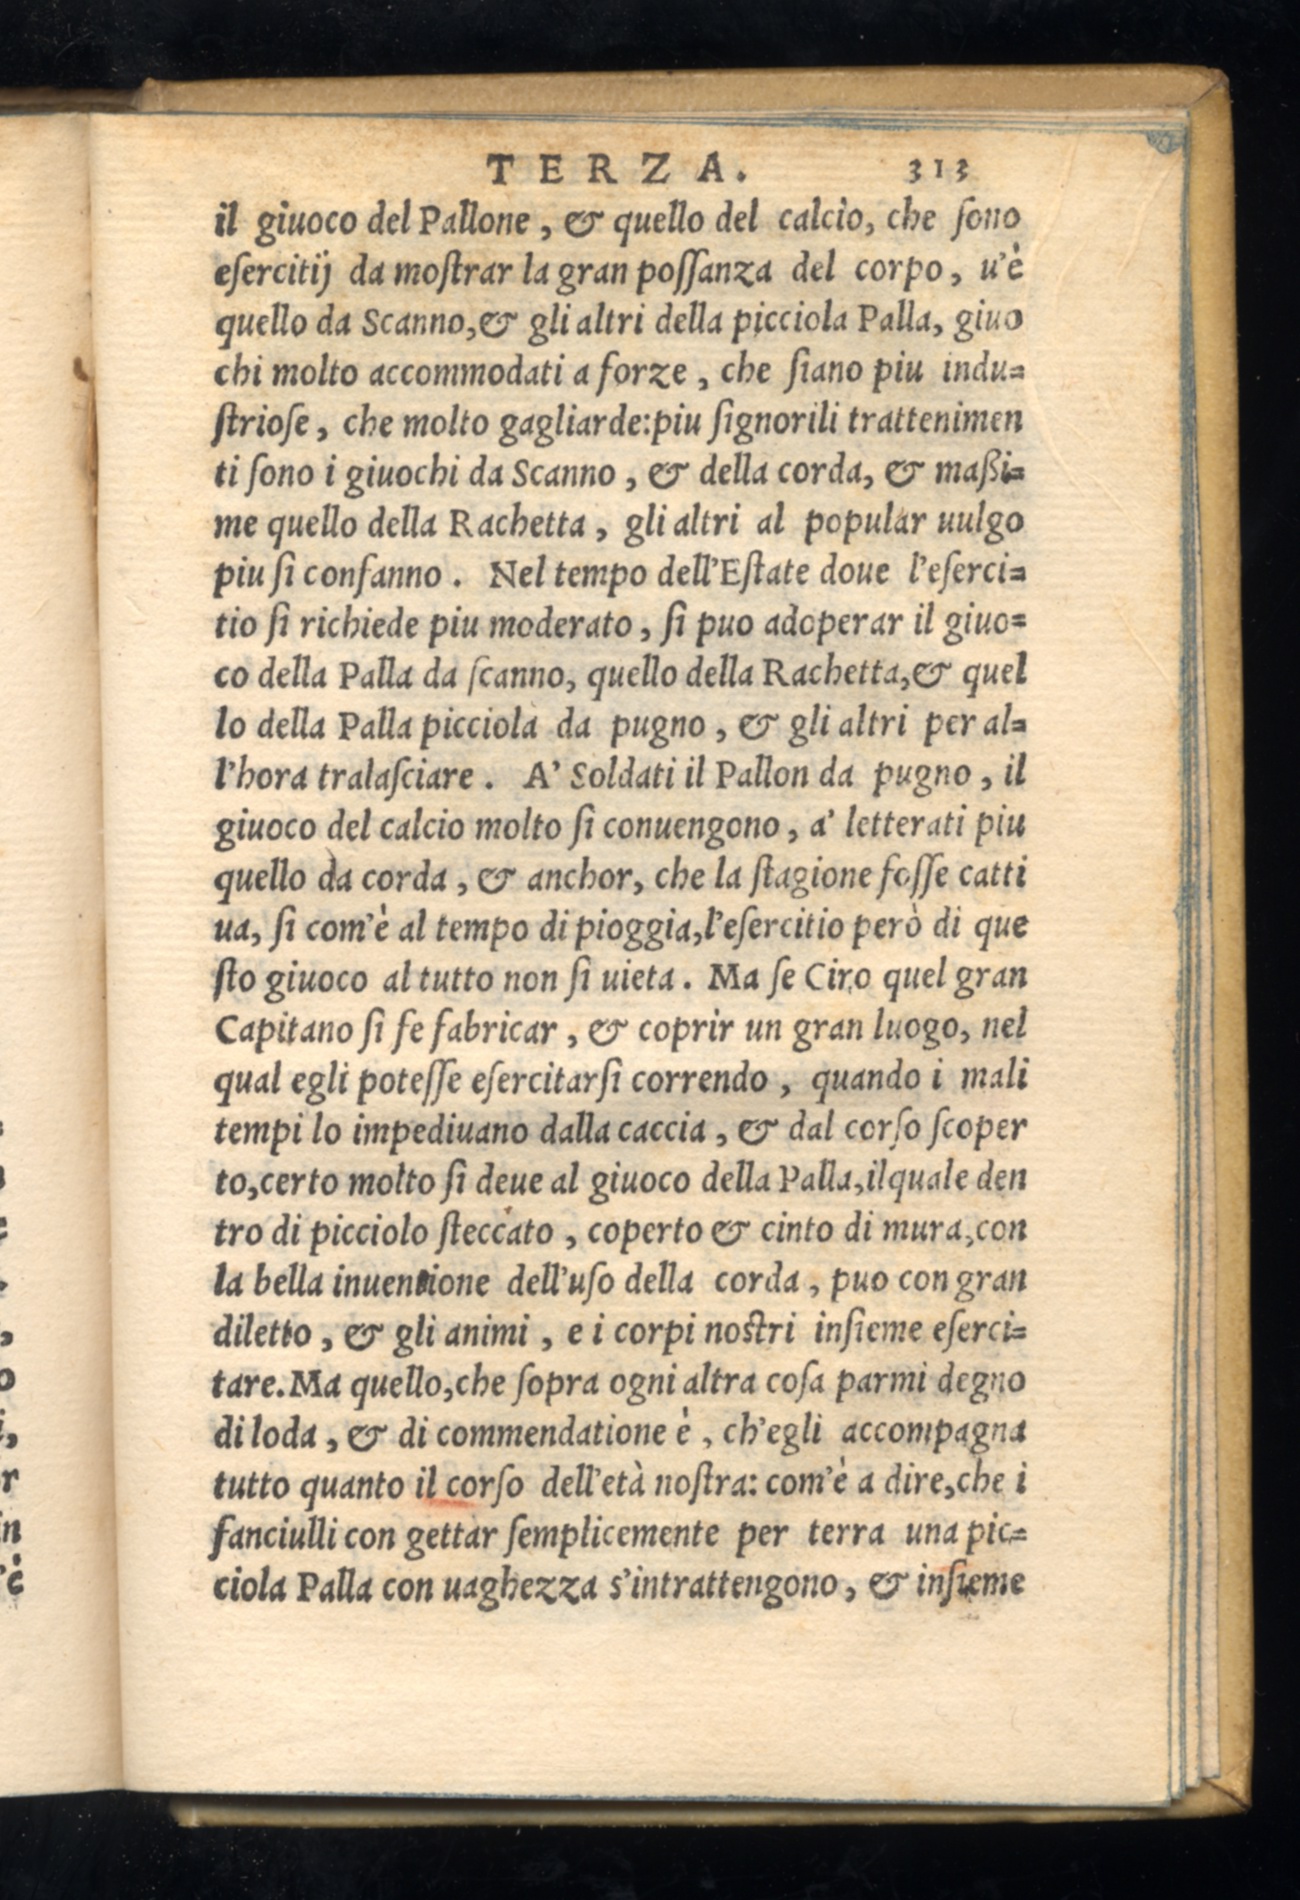 TERZA. 313
il giuoco del Pallone, & quello del calcio, che ſono
eſercitij da moſtrar la gran poſſanza del corpo, u'è
quello da Scanno,& gli altri della picciola Palla, giuo
chi molto accommodati a forze, che ſiano piu indu=
ſtrioſe, che molto gagliarde:piu ſignorili trattenimen
ti ſono i giuochi da Scanno, & della corda, & maßi=
me quello della Rachetta, gli altri al popular uulgo
piu ſi confanno. Nel tempo dell'Eſtate doue l'eſerci=
tio ſi richiede piu moderato, ſi puo adoperar il giuo=
co della Palla da ſcanno, quello della Rachetta,& quel
lo della Palla picciola da pugno, & gli altri per al=
l'hora tralaſciare. A' Soldati il Pallon da pugno, il
giuoco del calcio molto ſi conuengono, a' letterati piu
quello da corda, & anchor, che la ſtagione foſſe catti
ua, ſi com'è al tempo di pioggia,l'eſercitio però di que
ſto giuoco al tutto non ſi uieta. Ma ſe Ciro quel gran
Capitano ſi fe fabricar, & coprir un gran luogo, nel
qual egli poteſſe eſercitarſi correndo, quando i mali
tempi lo impediuano dalla caccia, & dal corſo ſcoper
to,certo molto ſi deue al giuoco della Palla,ilquale den
tro di picciolo ſteccato, coperto & cinto di mura,con
la bella inuentione dell'uſo della corda, puo con gran
diletto, & gli animi, e i corpi noſtri inſieme eſerci=
tare.Ma quello,che ſopra ogni altra coſa parmi degno
di loda, & di commendatione è, ch'egli accompagna
tutto quanto il corſo dell'età noſtra: com'è a dire,che i
fanciulli con gettar ſemplicemente per terra una pic=
ciola Palla con uaghezza s'intrattengono, & inſieme